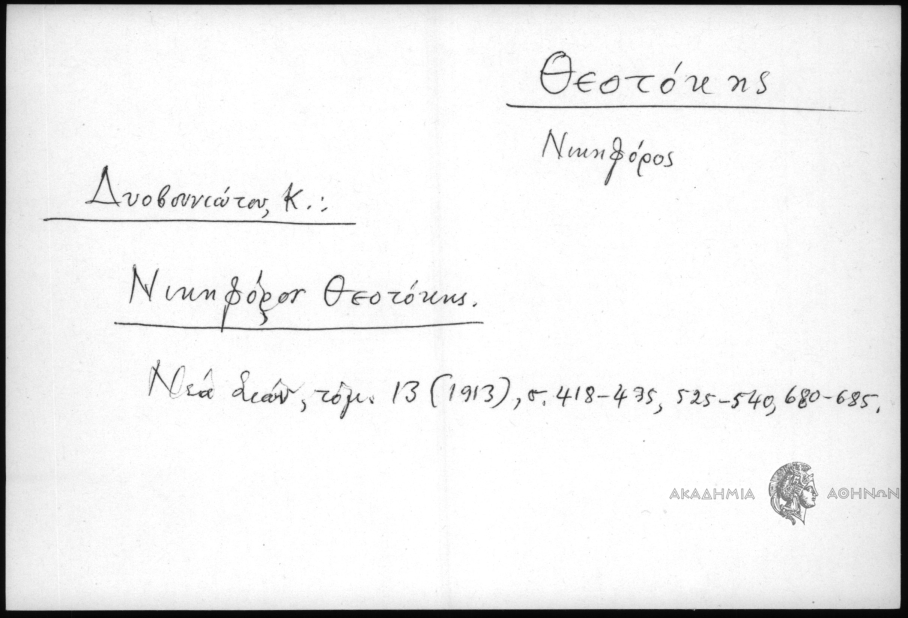 Θεοτόκης
Νικηφόρος
Δυοβουνιώτου, Κ.:
Νικηφόρος Θεοτόκης.
Νέα Σιών, τόμ. 13 (1913), σ. 418-435, 525-540, 680-685.
ΑΚΑΔΗΜΙΑ ΑΘΗΝΩΝ